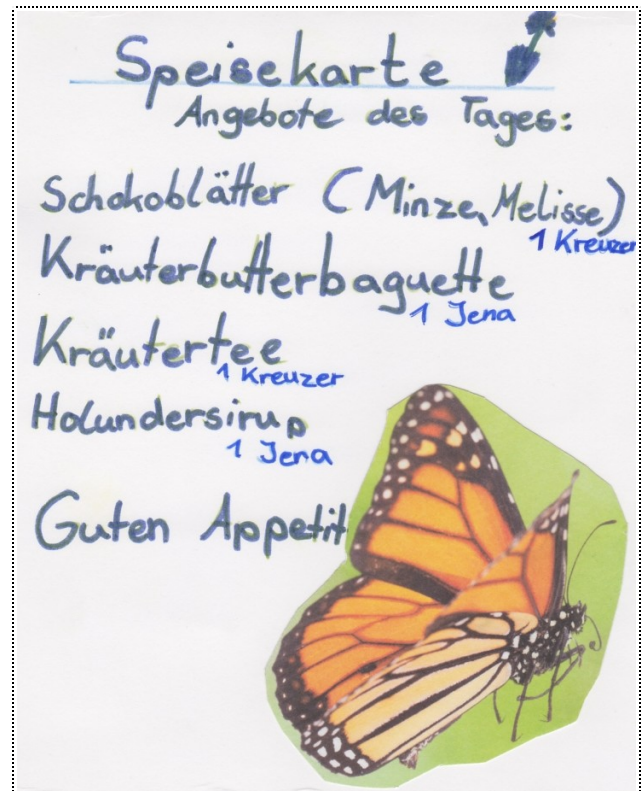 Speisekarte
Angebote des Tages:
Schokoblätter (Minze, Melisse)
1 Kreuzer
Kräuterbutterbaguette
1 Jena
Kräutertee
1 Kreuzer
Holundersirup
1 Jena
Guten Appetit